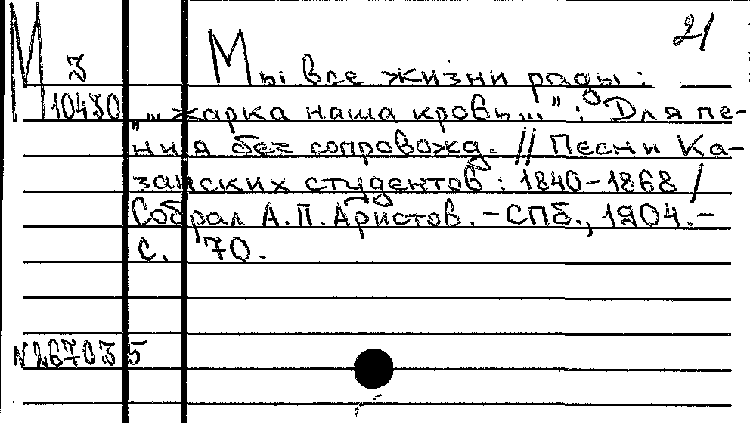 21
М
З
10430
Мы все жизни рады:
„„жарка наша кровь..." : Для пе-
ния без сопровожд. // Песни Ка-
занских студентов : 1840-1868 /
Собрал А.П. Аристов. - СПб., 1904.-
С. 70.
N 267035